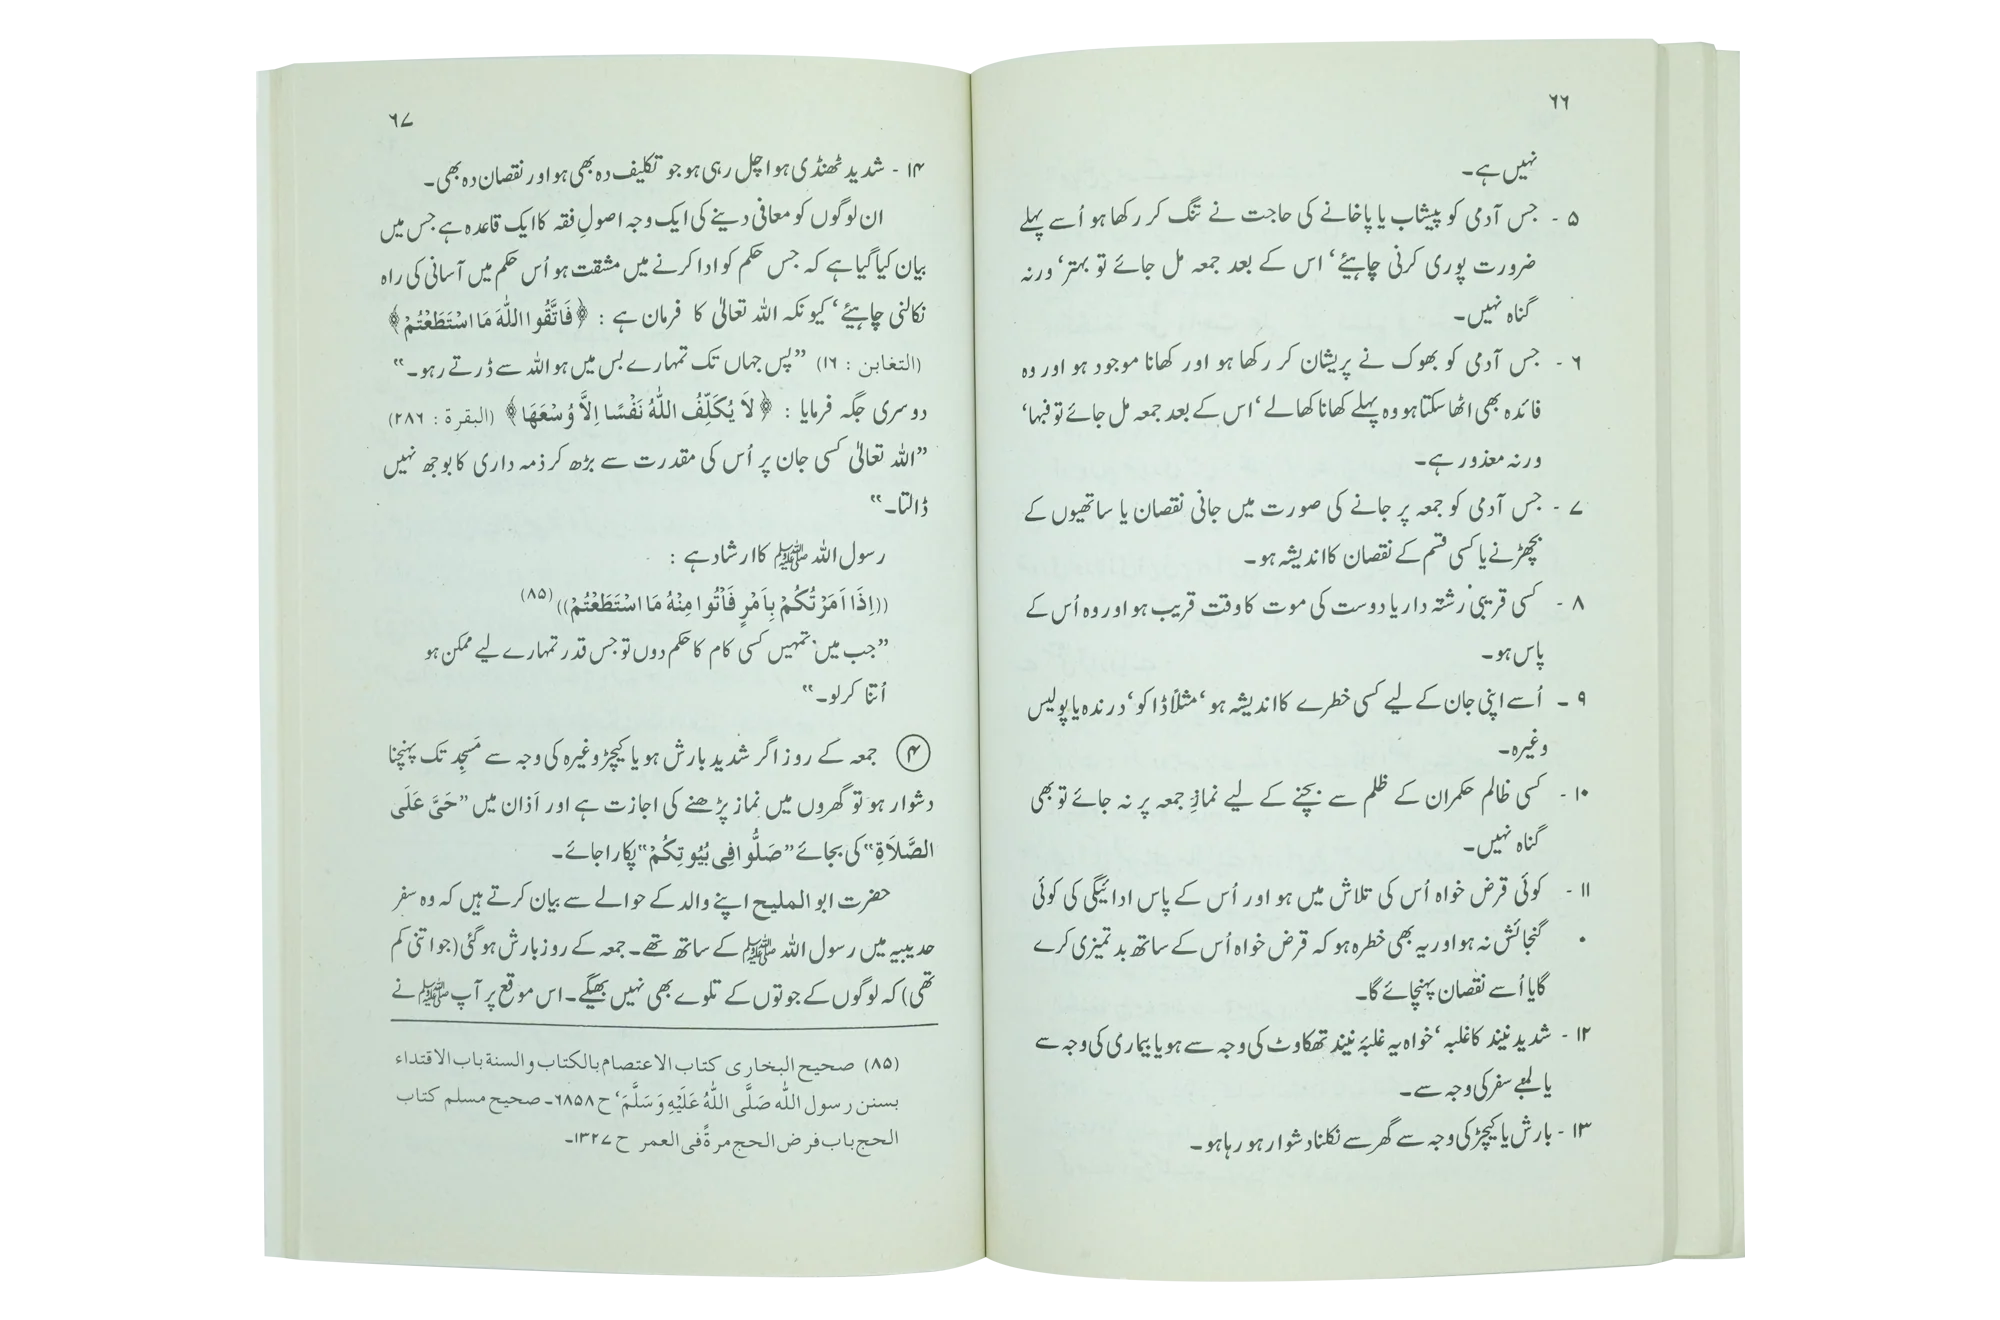 ۶۶
نہیں ہے۔
۵ - جس آدمی کو پیشاب یا پاخانے کی حاجت نے تنگ کر رکھا ہو اُسے پہلے
ضرورت پوری کرنی چاہیئے‘ اس کے بعد جمعہ مل جائے تو بہتر‘ ورنہ
گناہ نہیں۔
۶ - جس آدمی کو بھوک نے پریشان کر رکھا ہو اور کھانا موجود ہو اور وہ
فائدہ بھی اٹھا سکتا ہو وہ پہلے کھانا کھالے‘ اس کے بعد جمعہ مل جائے تو فبہا‘
ورنہ معذور ہے۔
۷ - جس آدمی کو جمعہ پر جانے کی صورت میں جانی نقصان یا ساتھیوں کے
بچھڑنے یا کسی قسم کے نقصان کا اندیشہ ہو۔
۸ - کسی قریبی رشتہ دار یا دوست کی موت کا وقت قریب ہو اور وہ اُس کے
پاس ہو۔
۹ - اُسے اپنی جان کے لیے کسی خطرے کا اندیشہ ہو‘ مثلاً ڈاکو‘ درندہ یا پولیس
وغیرہ۔
۱۰ - کسی ظالم حکمران کے ظلم سے بچنے کے لیے نمازِ جمعہ پر نہ جائے تو بھی
گناہ نہیں۔
۱۱ - کوئی قرض خواہ اُس کی تلاش میں ہو اور اُس کے پاس ادائیگی کی کوئی
گنجائش نہ ہو اور یہ بھی خطرہ ہو کہ قرض خواہ اُس کے ساتھ بدتمیزی کرے
گا یا اُسے نقصان پہنچائے گا۔
۱۲ - شدید نیند کا غلبہ‘ خواہ یہ غلبۂ نیند تھکاوٹ کی وجہ سے ہو یا بیماری کی وجہ سے
یا لمبے سفر کی وجہ سے۔
۱۳ - بارش یا کیچڑ کی وجہ سے گھر سے نکلنا دشوار ہو رہا ہو۔
۶۷
۱۴ - شدید ٹھنڈی ہوا چل رہی ہو جو تکلیف دہ بھی ہو اور نقصان دہ بھی۔
ان لوگوں کو معافی دینے کی ایک وجہ اصولِ فقہ کا ایک قاعدہ ہے جس میں
بیان کیا گیا ہے کہ جس حکم کو ادا کرنے میں مشقت ہو اُس حکم میں آسانی کی راہ
نکالنی چاہیئے‘ کیونکہ اللہ تعالیٰ کا فرمان ہے : ﴿فَاتَّقُوا اللّٰهَ مَا اسْتَطَعْتُمْ﴾
(التغابن : ۱۶) ”پس جہاں تک تمہارے بس میں ہو اللہ سے ڈرتے رہو۔“
دوسری جگہ فرمایا : ﴿لَا يُكَلِّفُ اللّٰهُ نَفْسًا اِلَّا وُسْعَهَا﴾ (البقرة : ۲۸۶)
”اللہ تعالیٰ کسی جان پر اُس کی مقدرت سے بڑھ کر ذمہ داری کا بوجھ نہیں
ڈالتا۔“
رسول اللہ ﷺ کا ارشاد ہے :
((اِذَا اَمَرْتُكُمْ بِاَمْرٍ فَأْتُوا مِنْهُ مَا اسْتَطَعْتُمْ)) (۸۵)
”جب میں تمہیں کسی کام کا حکم دوں تو جس قدر تمہارے لیے ممکن ہو
اُتنا کرلو۔“
۴ جمعہ کے روز اگر شدید بارش ہو یا کیچڑ وغیرہ کی وجہ سے مَسجِد تک پہنچنا
دشوار ہو تو گھروں میں نماز پڑھنے کی اجازت ہے اور اَذان میں ”حَيَّ عَلَى
الصَّلَاةِ“ کی بجائے ”صَلُّوا فِي بُيُوتِكُمْ“ پکارا جائے۔
حضرت ابو الملیح اپنے والد کے حوالے سے بیان کرتے ہیں کہ وہ سفر
حدیبیہ میں رسول اللہ ﷺ کے ساتھ تھے۔ جمعہ کے روز بارش ہو گئی (جو اتنی کم
تھی) کہ لوگوں کے جوتوں کے تلوے بھی نہیں بھیگے۔ اس موقع پر آپ ﷺ نے
(۸۵) صحیح البخاری کتاب الاعتصام بالکتاب والسنة باب الاقتداء
بسنن رسول اللہ صَلَّی اللّٰهُ عَلَیْهِ وَسَلَّمَ‘ ح ۶۸۵۸۔ صحیح مسلم کتاب
الحج باب فرض الحج مرةً فی العمر ح ۱۳۲۷۔